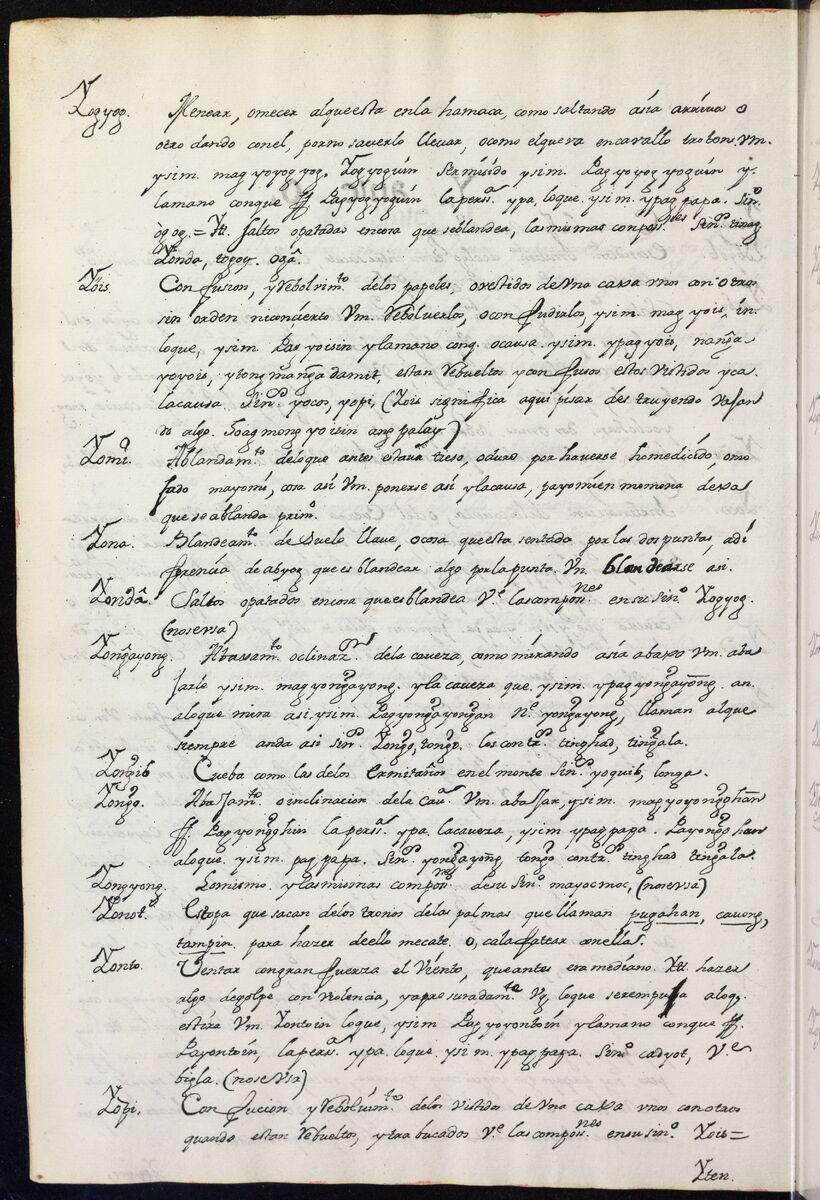 Yogyog. Menear, o mecer al que esta en la hamaca, como saltando asia arriva o
otro dando con el, por no saverlo llevar, o como el que va en cavallo troton. Vm.
y sim. mag yoyogyog, Yogyoguin ser mesido y sim. Pag yoyogyoguin y
la mano con que ff. Pagyogyoguin la perss.ᵃ ypa, loque. y sim. ypag papa. Sin.º
ogog. = Ytt. saltos opatadas encosa que seblandea, las mismas compos.ⁿᵉˢ Sin.º tinag
Yonda, togoy. oga.
Yois. Con fusion, y rebolvim.ᵗᵒ delos papeles, o vestidos de una caxa unos con otros
sin orden ni concierto Vm. rebolverlos, o con fudirlos, y sim. mag yois, in.
loque, y sim. Pag yoisin y la mano conq. o causa. y sim. ypag yois, nanga
yoyois, y tong manga damit, estan rebueltos y con fusos estos vistidos y ca.
la causa. Sin.º yocos, yopi, (Yois significa aqui pisar des truyendo vasan
do algo. Houag mong yoisin ang palay)
Yomi. Ablandam.ᵗᵒ deloque antes estava tieso, oduro por haverse homedecido, omo
jado mayomi, cosa asi Vm. ponerse asi y la causa, payomien momona dexa
que se ablanda prim.º
Yona. Blandeam.ᵗᵒ de suelo llave, o cosa que esta sentado por las dos puntas, a di
ferencia de abyog que es blandear algo por la punta. Vm. blandearse asi.
Yonda. Saltos opatados en cosa que es blandea V.ᵉ las compos.ⁿᵉˢ en su sin.º Yogyog.
(nosersa)
Yongayong. Abaxam.ᵗᵒ oclinaz.ⁿ dela caveza, como mirando asia abaxo Vm. aba
jarle y sim. mag yongayong. y la caveza que. y sim. ypag yongayong. an.
aloque mira asi y sim. Pagyongayongan N.ᵉ yongayong, llaman al que
siempre anda asi sin.º Yongo, tongo. los contr.º tinghad, tingala.
Yongib Cueba como las delos Ermitaños en el monte Sin.º yoquib, longa.
Yongo. Abaxam.ᵗᵒ o inclinacion dela cav.ᵃ Vm. abaxar, y sim. mag yoyongohan
ff. Pag yongohin la perss.ᵃ ypa. la caveza, y sim ypag papa. Payongohan
aloque. y sim. pag papa. Sin.º yongayong tongo contr.º tinghad tingala.
Yongyong. Lo mismo. y las mismas compos.ⁿᵉˢ de su sin.º mayocmoc, (noserssa)
Yonot. Estopa que sacan delos troncos delas palmas que llaman pugahan, cavong,
tampin. para hazer deello mecate. o, calafatear conellas.
Yonto. Ventar con gran fuerza el viento, que antes era mediano. Ytt. hazer
algo degolpe con violencia, y apresuradam.ᵗᵉ Vg. loque serempuja aloq.
estira Vm. Yontoin loque, y sim Pag yoyontoin y la mano con que ff.
Payontoin, la perss.ᵃ ypa. loque y sim. ypag papa. Sin.º cadyot, V.ᵉ
bigla. (noserssa)
Yopi. Con fucion y rebolvim.ᵗᵒ delos vistidos de una caxa unos con otros
quando estan rebueltos, y trabucados V.ᵉ las compos.ⁿᵉˢ ensu sin.º Yois =
Yten.